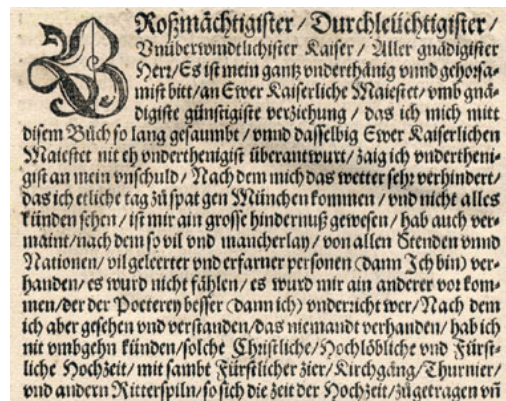 GRoßmächtigister / Durchleüchtigister /
Vnüberwindtlichister Kaiser / Aller gnädigister
Herr/Es ist mein gantz vnderthänig vnnd gehorsa-
mist bitt/an Ewer Kaiserliche Maiestet/vmb gnä-
digiste günstigiste verziehung / das ich mich mitt
disem Bůch so lang gesaumbt / vnnd dasselbig Ewer Kaiserlichen
Maiestet nit eh vnderthenigist überantwurt/ zaig ich vndertheni-
gist an mein vnschuld / Nach dem mich das wetter sehr verhindert/
das ich etliche tag zů spat gen München kommen / vnd nicht alles
künden sehen / ist mir ain grosse hindernuß gewesen / hab auch ver-
maint/nach dem so vil vnd mancherlay / von allen Stenden vnnd
Nationen/ vil geleerter vnd erfarner personen (dann Jch bin) ver-
handen/ es wurd nicht fählen/ es wurd mir ain anderer vor kom-
men/der der Poeterey besser (dann ich) vnderricht wer/ Nach dem
ich aber gesehen vnd verstanden/das niemandt verhanden/ hab ich
nit vmbgehn künden/solche Christliche/Hochlöbliche vnd Fürst-
liche Hochzeit/ mit sambt Fürstlicher zier/ Kirchgäng/ Thurnier/
vnd andern Ritterspiln/so sich die zeit der Hochzeit/zůgetragen vñ